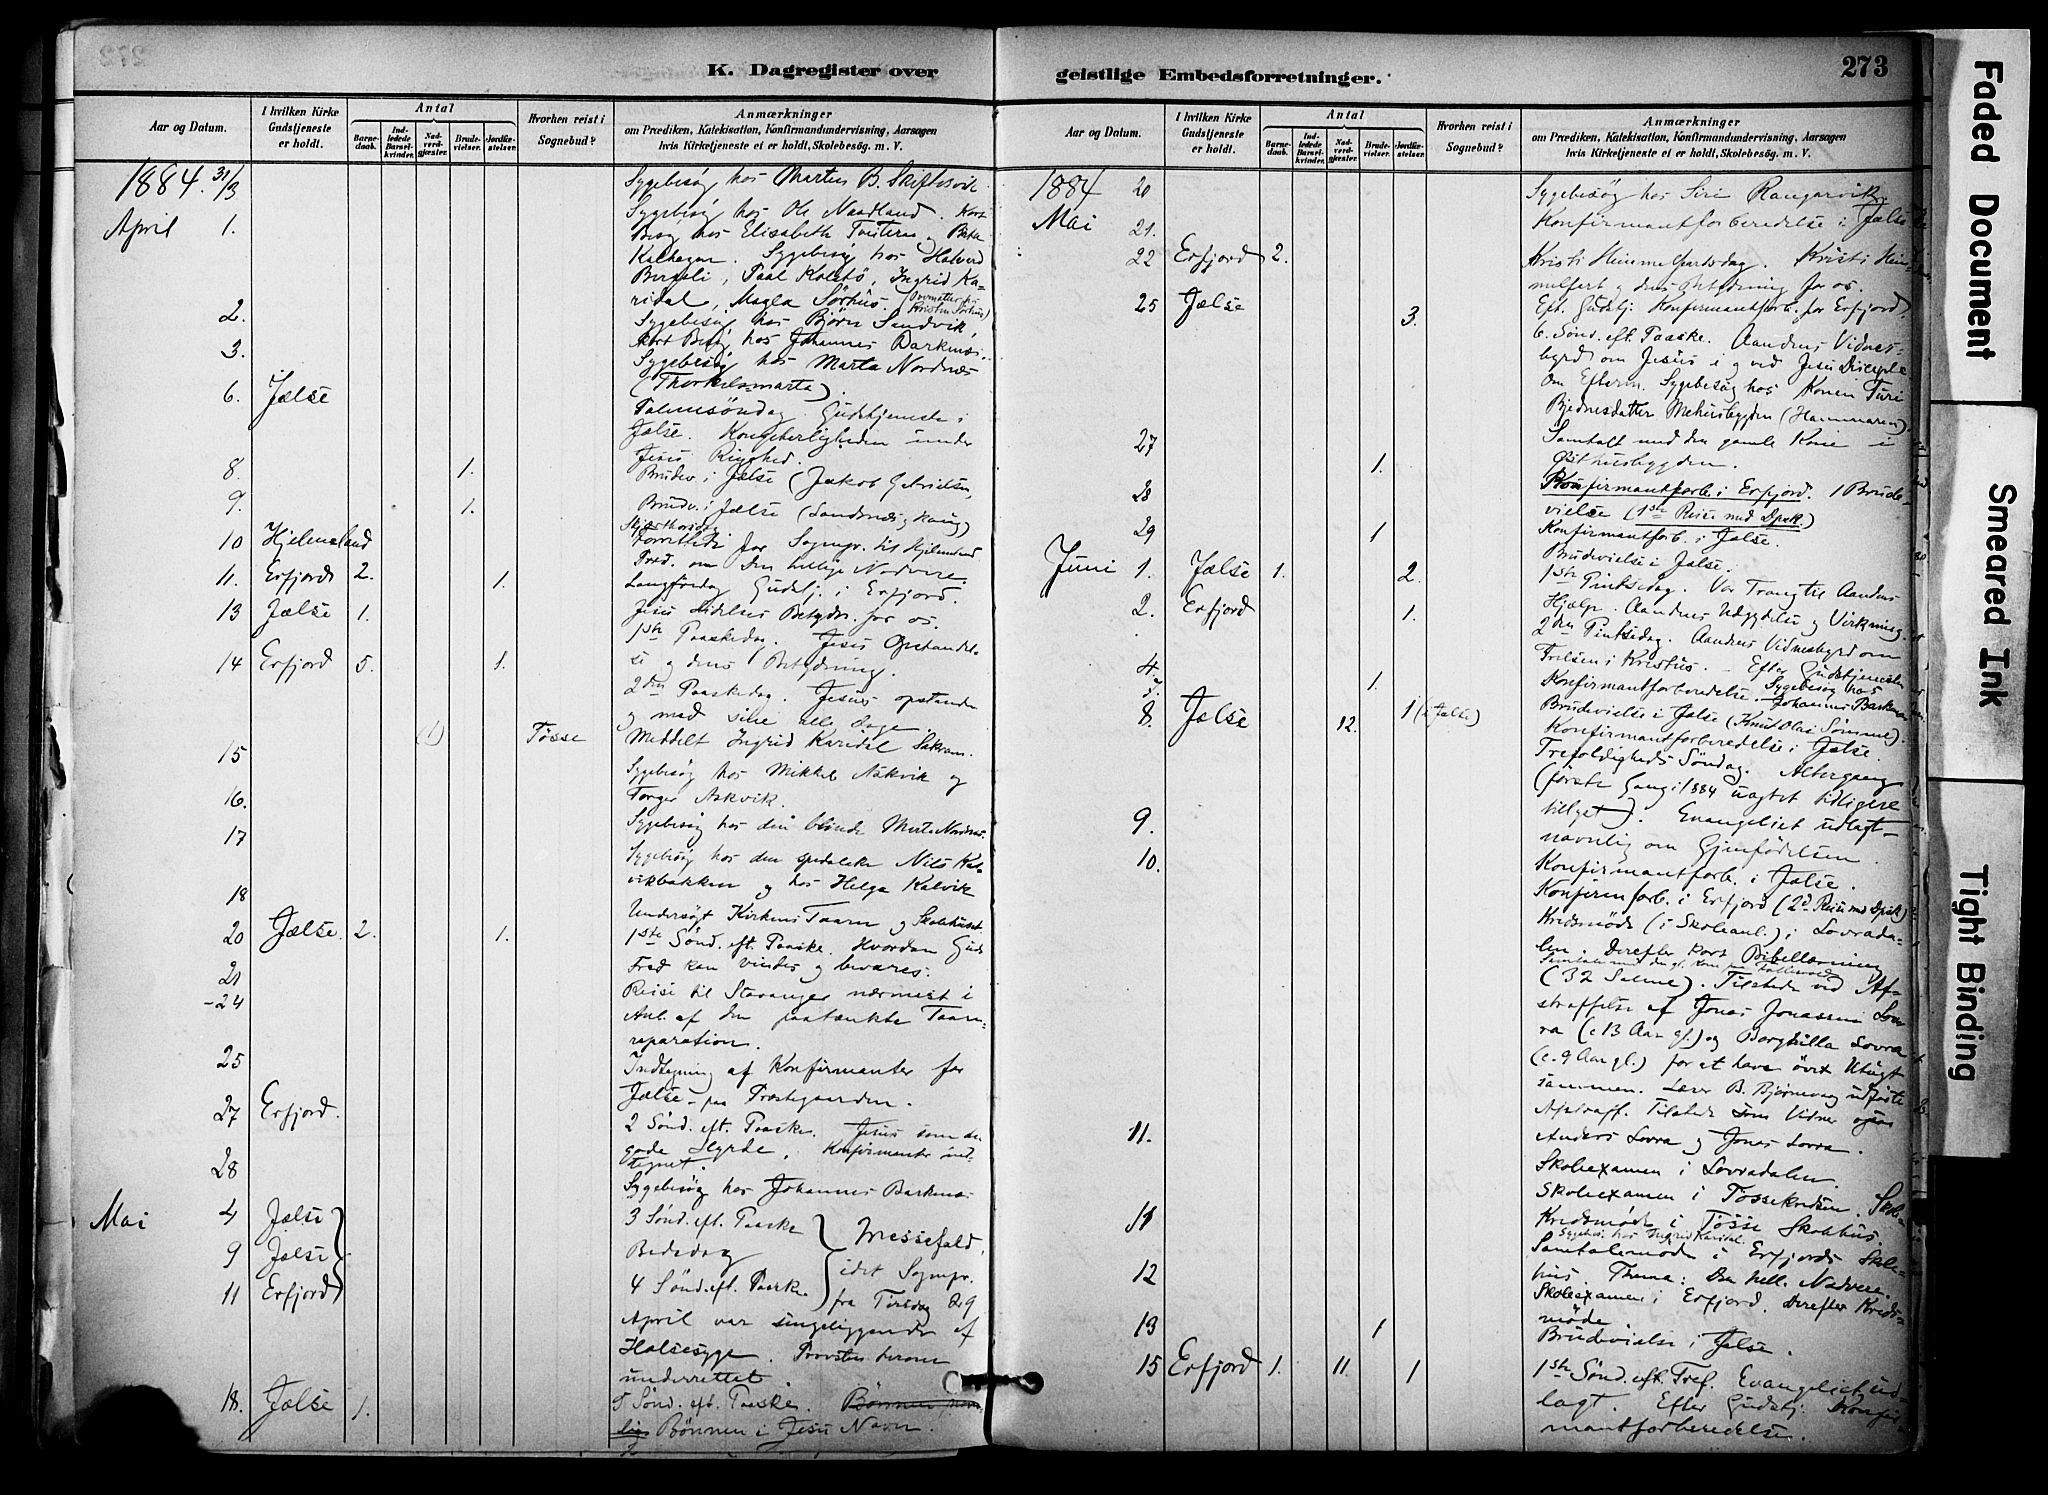 K. Dagregister over geistlige Embedsforretninger.
273
Aar og Datum.
I hvilken Kirke Gudstjeneste er holdt.
Antal
Barnedaab.
Indledede Barselkvinder.
Nadverdgjester.
Brudevielser.
Jordfæstelser.
Hvorhen reist i Sognebud?
Anmærkninger
om Prædiken, Katekisation, Konfirmandundervisning, Aarsagen
hvis Kirketjeneste ei er holdt, Skolebesøg. m. V.
1884. 31/3 Sygebesøg hos Marten B. Skiftesvik
April 1. Sygebesøg hos Ole Naadland. Kort
Besøg hos Elisabeth
Kalhagen. Sygebesøg hos Halvard
Bergeli, Paal Kolstø, Ingrid Ka-
ridal, Magla Sørhus.
2. Sygebesøg hos Bjørn Sandvik,
kort Besøg hos Johannes Barknes.
3. Sygebesøg hos Marta Nordnes
(Thorkelsmarta).
6. Jælse Palmesøndag. Gudstjeneste i
Jælse. Kongeherligheden under
Jesu Ringhed.
8. 1. Brudev. i Jælse (Jakob Gabrielsen,
9. 1. Brudv. i Jælse
10 Hjelmeland Skjærthorsdag
forrettede for Sognpr. til Hjelmeland
Præd. om Den hellige Nadvere.
11. Erfjord 2. 1. Langfredag Gudstj. i Erfjord.
Jesu Lidelses Betydn. for os.
13 Jælse 1. 1ste Paaskedag. Jesu Opstandel-
se og dens Betydning.
14 Erfjord 5. 1. 2den Paaskedag. Jesus opstanden
og med sine alle dage
(1) Tøsse Meddelt Ingrid Karidal Sakram.
15 Sygebesøg hos Mikkel Nakvik og
Torger Askvik.
16. Sygebesøg hos den blinde Marta Nordnes.
17 Sygebesøg hos den spedalske Nils Kal-
vikbakken og hos Helga Kalvik
18 Undersøgt Kirkens Taarn og Skolehuset.
20 Jælse. 2. 1. 1ste Sønd. eft. Paaske. Hvordan Guds
Fred kan vindes og bevares.
21
-24 Reise til Stavanger nærmest i
Anl. af den paatænkte Taarn-
reparation.
25 Indtegning af Konfirmanter for
Jælse - paa Præstegaarden.
27 Erfjord. 2 Sønd. eft. Paaske. Jesus som den
gode Hyrde. Konfirmanter ind-
tegnet.
28 Sygebesøg hos Johannes Barknes
Mai 4 Jælse 3 Sønd. eft. Paaske
9 Jælse Bededag
11 Erfjord 4 Sønd. eft. Paaske.
Messefald,
idet Sognpr.
fra Tirsdag 29
April var sengeliggende af
Halsesyge. Provsten herom
underrettet.
18. Jælse 1. 5 Sønd. eft. Paaske. Bønnen navn-
lig Bønnen i Jesu Navn.
Aar og Datum.
I hvilken Kirke Gudstjeneste er holdt.
Antal
Barnedaab.
Indledede Barselkvinder.
Nadverdgjester.
Brudevielser.
Jordfæstelser.
Hvorhen reist i Sognebud?
Anmærkninger
om Prædiken, Katekisation, Konfirmandundervisning, Aarsagen
hvis Kirketjeneste ei er holdt, Skolebesøg. m. V.
1884 20 Sygebesøg hos Siri Rangarvik.
Mai 21. Konfirmantforberedelse i Jælse
22 Erfjord 2. Kristi Himmelfartsdag. Kristi Him-
melfart og dens Betydning for os.
Eft. Gudstj. Konfirmantforb. for Erfjord.
25 Jælse 3. 6. Sønd. eft. Paaske. Aandens Vidnes-
byrd om Jesus i og ved Jesu Disciple
Om Efterm. Sygebesøg hos Konen Turi
Bjednesdatter Mehusbygden (Hammaren).
Samtalt med den gamle Kone i
Østhusbygden.
27 1. Konfirmantforb. i Erfjord. 1 Brude-
vielse (1ste Reise med Dpsk.)
28 Konfirmantforb. i Jælse.
29 1 Brudevielse i Jælse.
Juni 1. Jælse 1. 2 1ste Pintsedag. Vor Trang til Aandens
Hjælp. Aandens Udgydelse og Virkning.
2. Erfjord 1. 2den Pintsedag. Aandens Vidnesbyrd om
Frelsen i Kristus. - Efter Gudstjenesten
Konfirmantforberedelse. Sygebesøg hos
Johannes Barknes
4 1. Brudevielse i Jælse (Knut Olai Sømme).
Konfirmantforberedelse i Jælse.
8. Jælse 12. 1 (i Jælse) Trefoldigheds Søndag. Altergang
(første Gang i 1884 uagtet tidligere
tillyst). Evangeliet udlagt
navnlig om Gjenfødelsen.
9. Konfirmantforb. i Jælse.
10. Konfirmforb. i Erfjord (2d Reise med Dpsk)
Kredsmøde (i Skoleanl.) i Lovrada-
len. Derefter kort Bibellæsning
(32 Salme). Tilstede ved Af-
straffelse af Jonas Jonassen Lov-
ra (c 13 Aar gl.) og Borghilla Lovra
(c. 9 Aar gl.) for at have øvet Utugt
sammen. Lærer B. Bjørnevaag udførte
Afstraff. Tilstede som Vidner ogsaa
Anders Lovra og Jonas Lovra.
11. Skoleexamen i Lovradalen.
Skoleexamen i Tøssekredsen. Skole-
Kredsmøde i Tøsse Skolehus.
Sygebes. hos Ingrid Karidal.
11 Samtalemøde i Erfjords Skole-
hus. Thema: Den hell. Nadvere.
12 Skoleexamen i Erfjord. Derefter Kreds-
møde.
13 1 Brudevielse i Jælse.
15 Erfjord 1. 11. 1 1ste Sønd. eft. Tref. Evangeliet ud-
lagt. Efter Gudstj. Konfir-
mantforberedelse.
Faded Document
Smeared Ink
Tight Binding